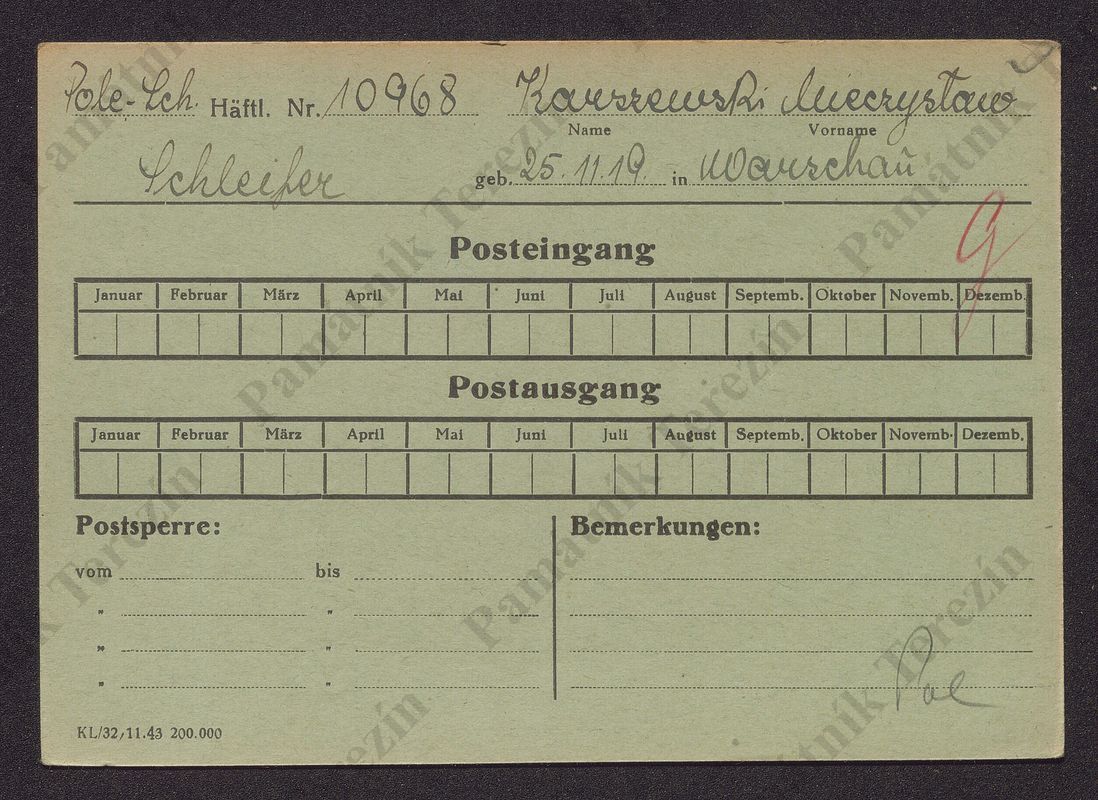 Pole-Sch. Häftl. Nr. 10968 Karszewski Mieczysław
Name Vorname
Schleifer geb. 25.11.19. in Warschau
g
Posteingang
Januar Februar März April Mai Juni Juli August Septemb. Oktober Novemb. Dezemb.
Postausgang
Januar Februar März April Mai Juni Juli August Septemb. Oktober Novemb. Dezemb.
Postsperre: Bemerkungen:
vom bis
" "
" "
" "
Pol
KL/32/11.43 200.000
Památník Terezín